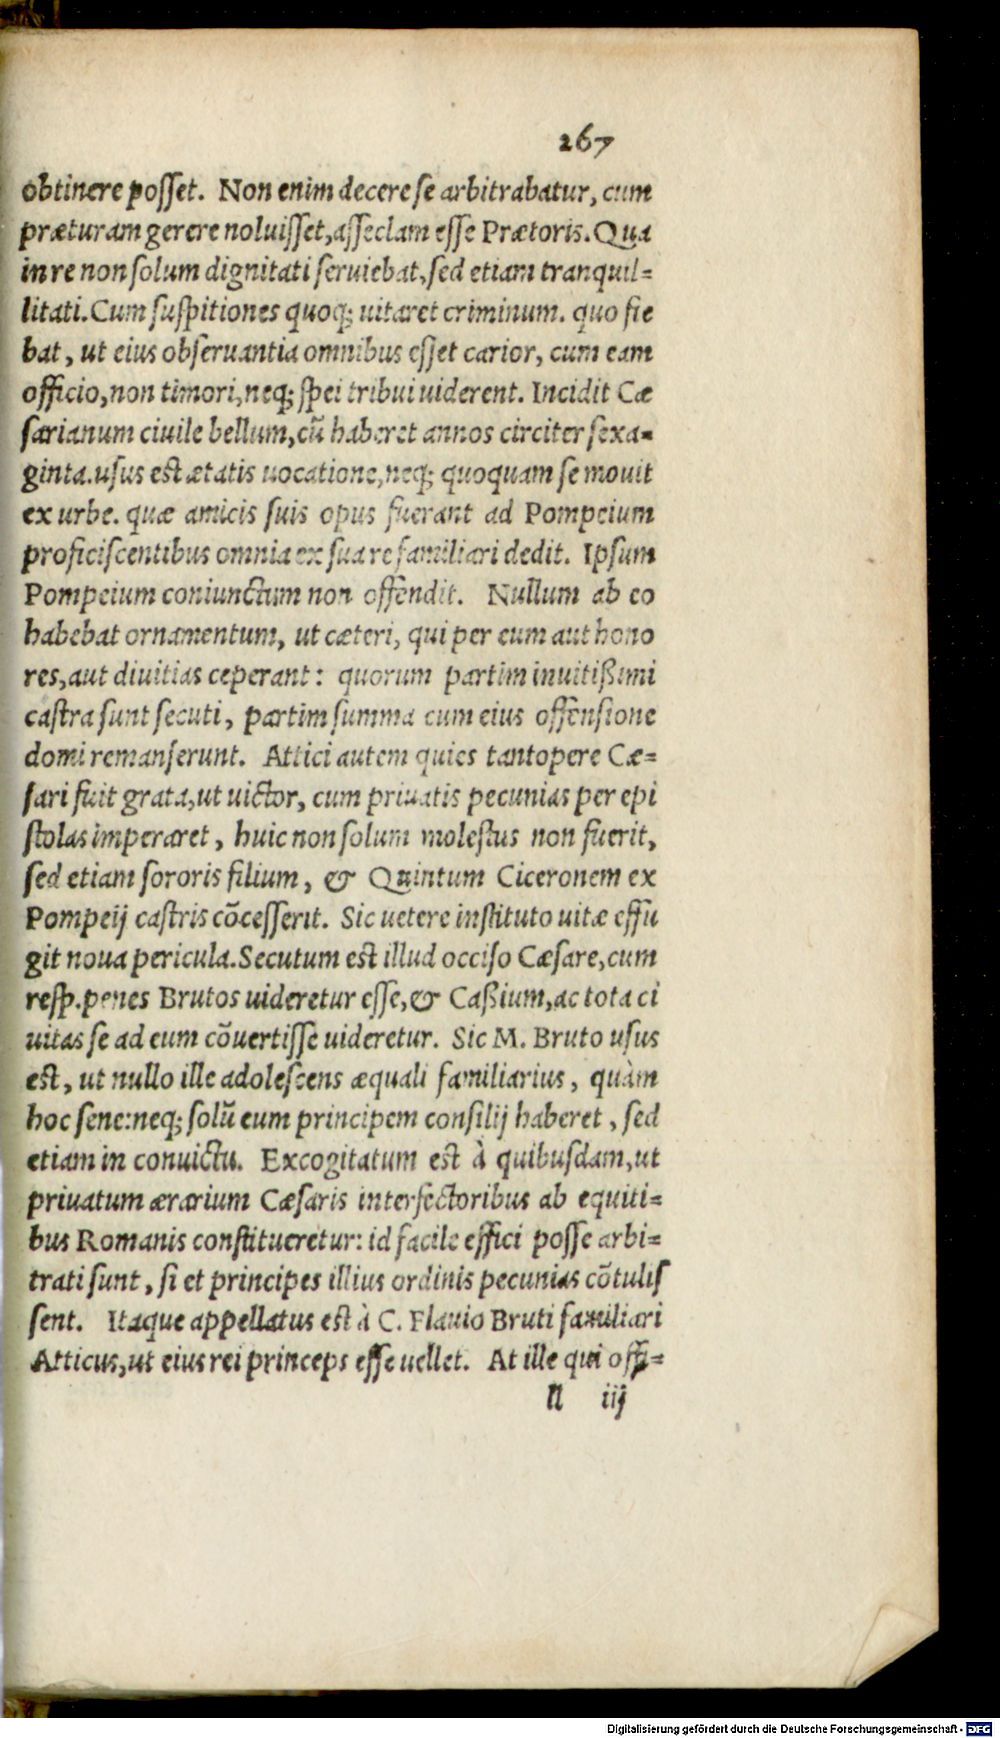 267
obtinere posſet. Non enim decere ſe arbitrabatur, cum
præturam gerere noluiſſet, aſſeclam eſſe Prætoris. Qua
in re non ſolum dignitati ſeruiebat, ſed etiam tranquil-
litati. Cum ſuſpitiones quoq; uitaret criminum. quo fie
bat, ut eius obſeruantia omnibus eſſet carior, cum eam
officio, non timori, neq; ſpei tribui uiderent. Incidit Cæ
ſarianum ciuile bellum, cũ haberet annos circiter ſexa-
ginta. uſus est ætatis uocatione, neq; quoquam ſe mouit
ex urbe. quæ amicis ſuis opus fuerant ad Pompeium
proficiſcentibus omnia ex ſua re familiari dedit. Ipſum
Pompeium coniunctum non offendit. Nullum ab eo
habebat ornamentum, ut cæteri, qui per eum aut hono
res, aut diuitias ceperant: quorum partim inuitißimi
caſtra ſunt ſecuti, partim ſumma cum eius offenſione
domi remanſerunt. Attici autem quies tantopere Cæ-
ſari fuit grata, ut uictor, cum priuatis pecunias per epi
ſtolas imperaret, huic non ſolum moleſtus non fuerit,
ſed etiam ſororis filium, & Quintum Ciceronem ex
Pompeij caſtris cõceſſerit. Sic uetere inſtituto uitæ effu
git noua pericula. Secutum est illud occiſo Cæſare, cum
reſp. penes Brutos uideretur eſſe, & Caßium, ac tota ci
uitas ſe ad eum cõuertiſſe uideretur. Sic M. Bruto uſus
est, ut nullo ille adoleſcens æquali familiarius, quàm
hoc ſene: neq; ſolũ eum principem conſilij haberet, ſed
etiam in conuictu. Excogitatum est à quibuſdam, ut
priuatum ærarium Cæſaris interfectoribus ab equiti-
bus Romanis conſtitueretur: id facile effici poſſe arbi-
trati ſunt, ſi et principes illius ordinis pecunias cõtuliſ
ſent. Itaque appellatus est à C. Flauio Bruti familiari
Atticus, ut eius rei princeps eſſe uellet. At ille qui offi-
ll iij
Digitalisierung gefördert durch die Deutsche Forschungsgemeinschaft - DFG